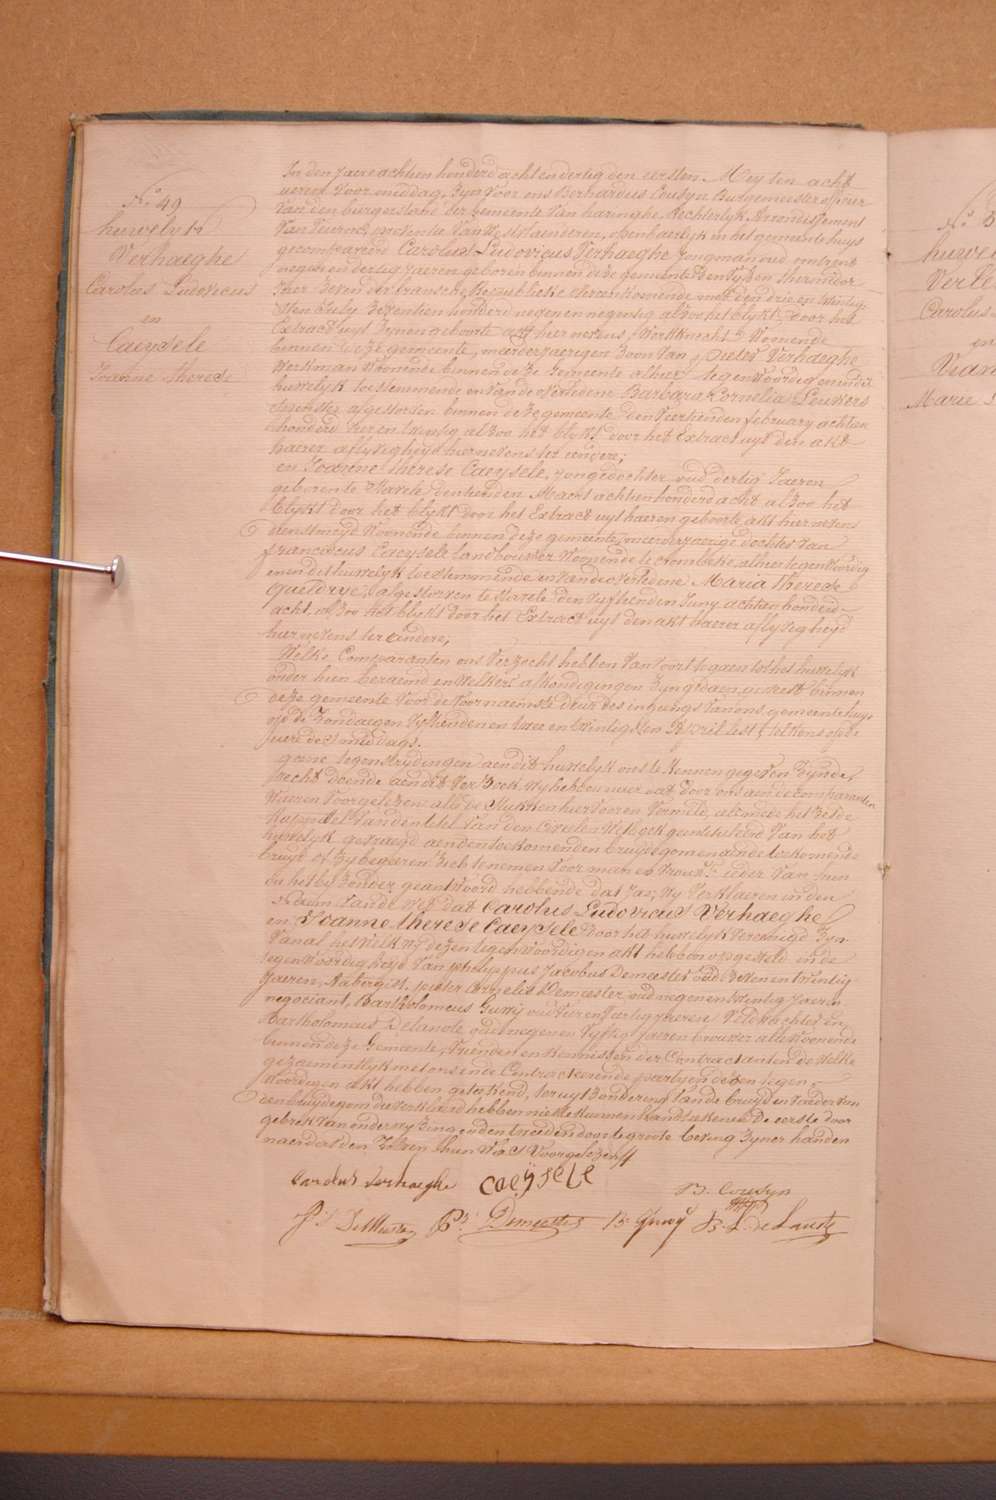 N.° 49
huwelyk
Verhaeghe
Carolus Ludovicus
en
Caeysele
Joanne Therese
In den Jaere achtien honderd acht en dertig den eersten Mey ten acht
ueren voor middag, Zyn voor ons Bernardus Cousyn Burgemeester officier
Van den burgerstand der gemeente Van haringhe Rechterlyk Arrondissement
Van Veurne, provintie Van West vlaenderen, openbaerlyk in het gemeente huys
gecompareerd Carolus Ludovicus Verhaeghe Jongman oud omtrent
negen en dertig Jaeren geboren binnen deze gemeente Den Vyfden thermidor
Jaer Zeven der fransche Republieke overeenkomende met den drie en twintig
sten July Zeventien honderd negen en negentig alzoo het blykt door het
Extract uyt Zynen geboorte akt hier nevens, Werkknecht Wonende
binnen deze gemeente, meerderjaerigen Zoon Van Pieter Verhaeghe
Werkman Wonende binnen deze Gemeente alhier tegenwoordig en in dit
huwelyk toestemmende en Van de overledene Barbara Cornelia Leuvers
afgestorven binnen deze gemeente den Veertienden february achtien
honderd Vier en twintig alzoo het blykt door het Extract uyt den akt
haerer aflyvigheyd hiernevens ter andere;
en Joanne Therese Caeysele, Jonge dochter oud dertig Jaeren
geboren te Stavele den tienden Maert achtienhonderd acht alzoo het
blykt door het blykt door het Extract uyt haeren geboorte akt hier nevens
dienstmeyd Woonende binnen deze gemeente, meerderjaerige dochter Van
franciscus Caeysele Landbouwer Wonende te Crombeke, alhier tegenwoordig
en in dit huwelyk toestemmende en Van de overledene Maria Therese
Queldrye, afgestorven te Stavele den Vyftienden Juny achtien honderd
acht alzoo het blykt door het Extract uyt den akt haerer aflyvigheyd
hiernevens ter andere;
Welke Comparanten ons Verzocht hebben Van voort te gaen tot het huwelyk
onder hun beraemd en Welkers afkondigingen Zyn gedaen geweest binnen
deze gemeente Voor de Voornaemste deur des ingangs Van ons gemeente huys
op de Zondaegen Vyftienden en twee en twintigsten April lest, telkens op de
uere des middags.
geene tegenstrydingen aen dit huwelyk ons te kennen gegeven Zynde,
recht doende aen dit Verzoek, Wy hebben naer dat door ons aen de comparanten
Waeren Voorgelezen alle de Stukken hier vooren Vermeld, alsmede het Zesde
kapittel Van den titel Van den Burgerlyken Wetboek geintituleerd Van het
huwelyk gevraegd aen den toekomenden bruydegom en aen de toekomende
bruyd of Zy begeeren Zich te nemen Voor man en Vrouw; ieder Van hun
by het byzonder geantwoord hebbende dat Jae; Wy Verklaeren in den
Naem Van de Wet dat Carolus Ludovicus Verhaeghe
en Joanne Therese Caeysele Door het huwelyk Vereenigd Zyn
Van al het Welk Wy dezen tegenwoordigen akt hebben opgesteld in de
tegenwoordigheyd Van philippus Jacobus Demeester oud Zeven en twintig
Jaeren, pieter Cornelis Demeester oud negen en twintig Jaeren
negociant, Bartholomeus Gussy oud Vier en Veertig Jaeren Veldwachter en
Bartholomeus L. delanote oud negen en Vyftig Jaeren brouwer alle Woonende
binnen deze Gemeente, Vrienden en kennissen der Contractanten De Welke
gezaementlyk met ons en de Contracteerende partyen dezen tegen-
woordigen akt hebben geteekend, ter uytzondering Van de bruyd en Vader Van
den bruydegom die Verklaerd hebben niet te kunnen handteekenen De eerste door
gebrek Van onderwyzing en den tweeden door te groote beving Zyner handen
naer dat den Zelven hun Was Voorgelezen //
Carolus Verhaeghe Caeÿsele B. Cousyn
P J DeMeester P. C. Demeester B. L. de Lanote
N.° 5
huwe
Verle
Carolus
en
Vian
Marie